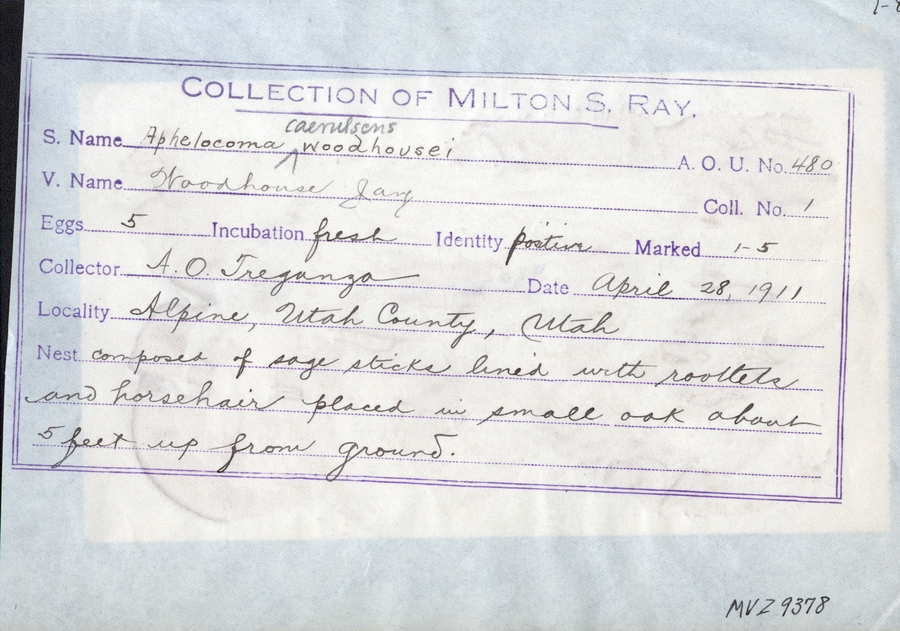 COLLECTION OF MILTON S. RAY.
caerulsens
S. Name Aphelocoma ^ woodhousei A. O. U. No. 480
V. Name Woodhouse Jay Coll. No. 1
Eggs 5 Incubation fresh Identity postive Marked 1-5
Collector A. O. Treganza Date April 28, 1911
Locality Alpine, Utah County, Utah
Nest composed of sage sticks lined with rootlets
and horsehair placed in small oak about
5 feet up from ground.
MVZ 9378